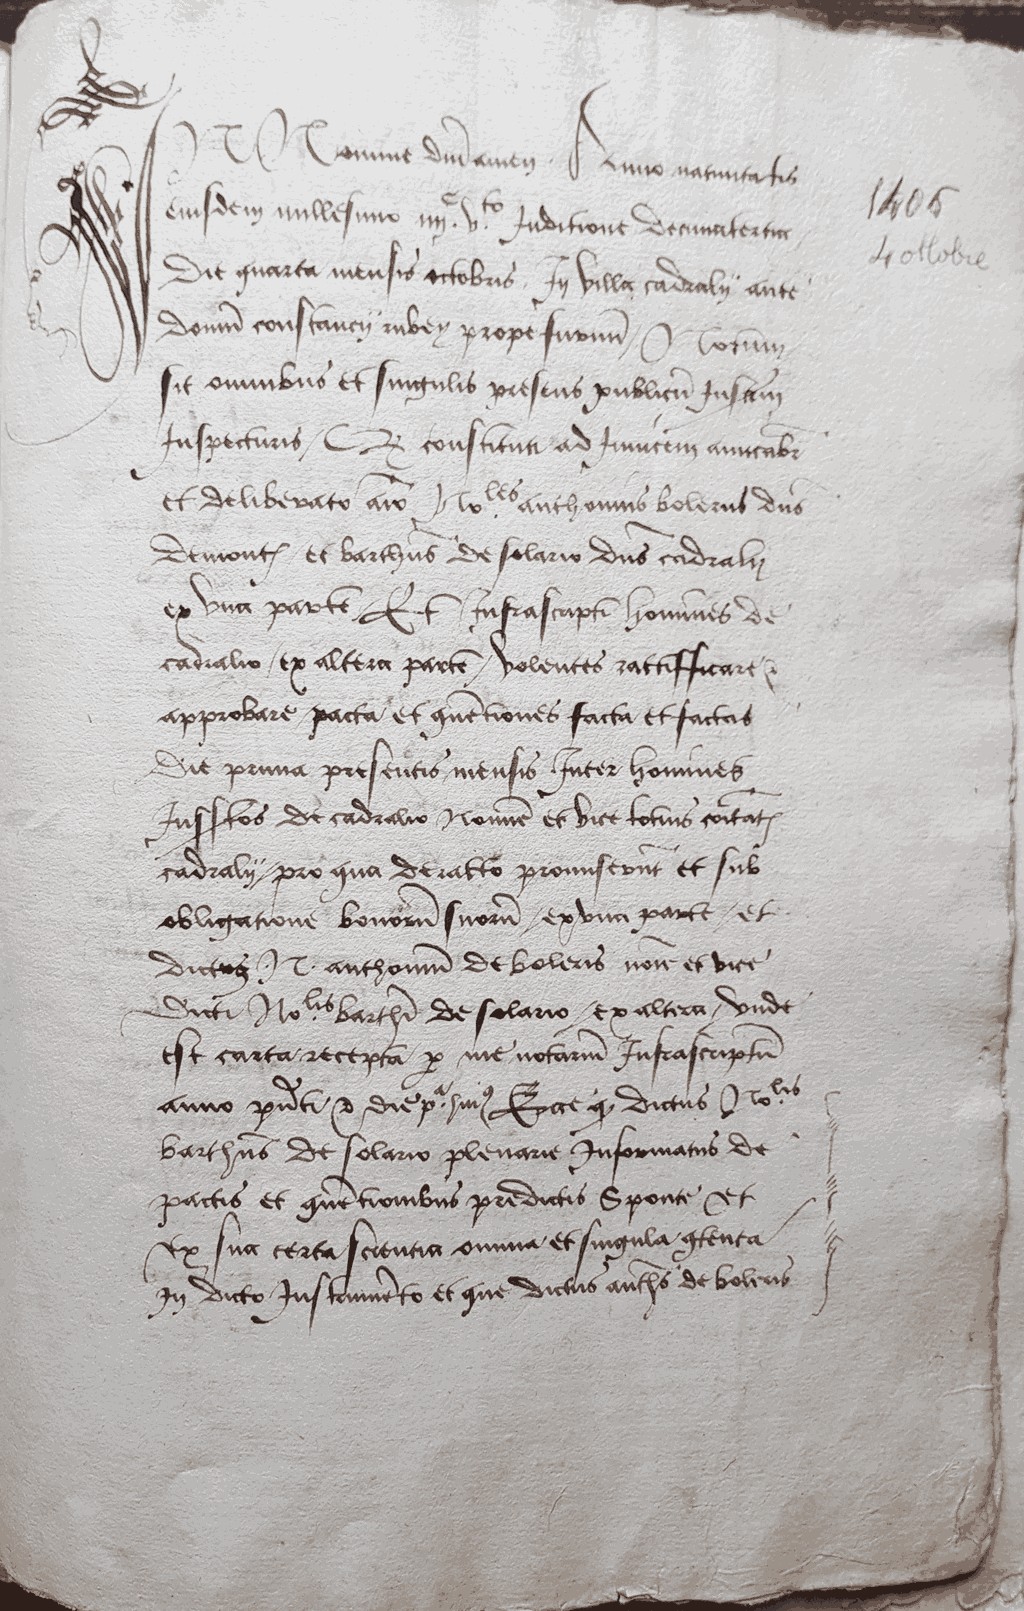 IN Nomine dni amen. Anno nativitatis
1405
eiusdem millesimo iiijc. vto Inditione decimatertia
4 ottobre
Die quarta mensis octobris. In villa cadralij ante
domu constancij rubey prope furnu / Notum
sit omnibus et singulis presens publicu Instrm
Inspecturis / constituti ad Invicem amicabr
et deliberato aio Noles anthonius bolerus dns
demont et barthus de solario dns cadralij
ex una parte / Et Infrascripti homines de
cadralio / ex altera parte / volentes rattifficare
approbare pacta et quentiones facta et factas
die prima presentis mensis Inter homines
Inffitos de cadralio Nomine et vice totius coitat
cadralij / pro qua de ratto promiserunt et sub
obligatione bonoru suoru / ex una parte / et
dictus N. anthoniu de boleris noie et vice
dicti Nolis barthi de solario / ex altera / unde
est carta recepta p me notariu Infrascriptu
anno pnti die pa Ecce q dictus Nolis
barthus de solario plenarie Informatus de
pactis et quentionibus predictis Sponte et
ex sua certa scientia omnia et singula qtenta
In dicto Instrumeto et que dictus anths de boleris